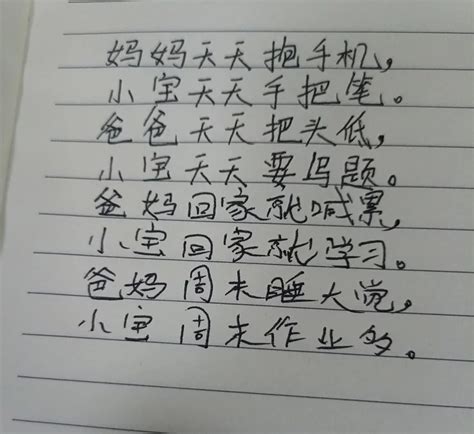 妈妈天天抱手机,
小宝天天手把笔。
爸爸天天把头低,
小宝天天要写题。
爸妈回家就喊累,
小宝回家就学习。
爸妈周末睡大觉,
小宝周末作业多。